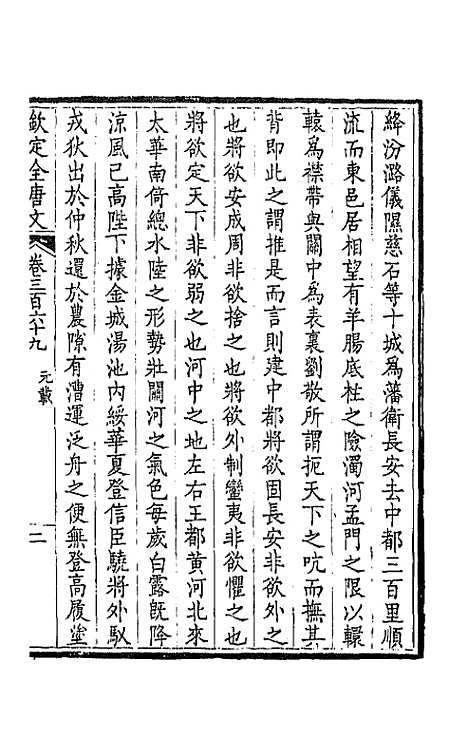 絳汾潞儀隰慈石等十城爲藩衛長安去中都三百里順
流而東邑居相望有羊腸底柱之險濁河孟門之限以轘
轅爲襟帶與關中爲表裏劉敬所謂扼天下之吭而撫其
背即此之謂推是而言則建中都將欲固長安非欲外之
也將欲安成周非欲捨之也將欲外制蠻夷非欲懼之也
將欲定天下非欲弱之也河中之地左右王都黃河北來
太華南倚總水陸之形勢壯關河之氣色每歲白露旣降
涼風已高陛下據金城湯池內綏華夏登信臣驍將外馭
戎狄出於仲秋還於農隙有漕運泛舟之便無登高履塗
欽定全唐文 卷三百六十九 元載 二